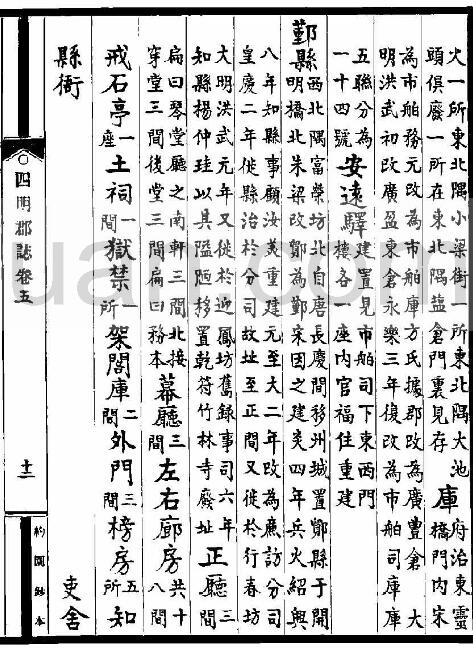 火一所東北隅小梁街一所東北隅大池頭俱廢一所在東北隅鹽倉門裏見存 庫府治東靈橋門內宋
為市舶務元改為市舶庫方氏據郡改為廣豐倉大明洪武初改廣盈東倉永樂三年復改為市舶司庫庫
五聯分為一十四號 安遠驛建置見市舶司下東西門樓各一座內官福住重建
鄞縣西北隅富榮坊北自唐長慶間移州城置鄮縣于開明橋北朱梁改鄮為鄞宋因之建炎四年兵火紹興
八年知縣事顧汝美重建元至大二年改為廉訪分司皇慶二年徙縣治於分司故址至正間又徙於行春坊
大明洪武元年又徙於迎鳳坊舊錄事司六年知縣楊仲珪以其隘陋移置乾符竹林寺廢址 正廳三間
扁曰琴堂廳之南軒三間北接穿堂三間後堂三間扁曰務本 幕廳三間 左右廊房共十八間
戒石亭一座 土祠一間 獄禁一所 架閣庫二間 外門三間 榜房五所 知
縣衙 吏舍
四明郡誌卷五
十二
約園鈔本